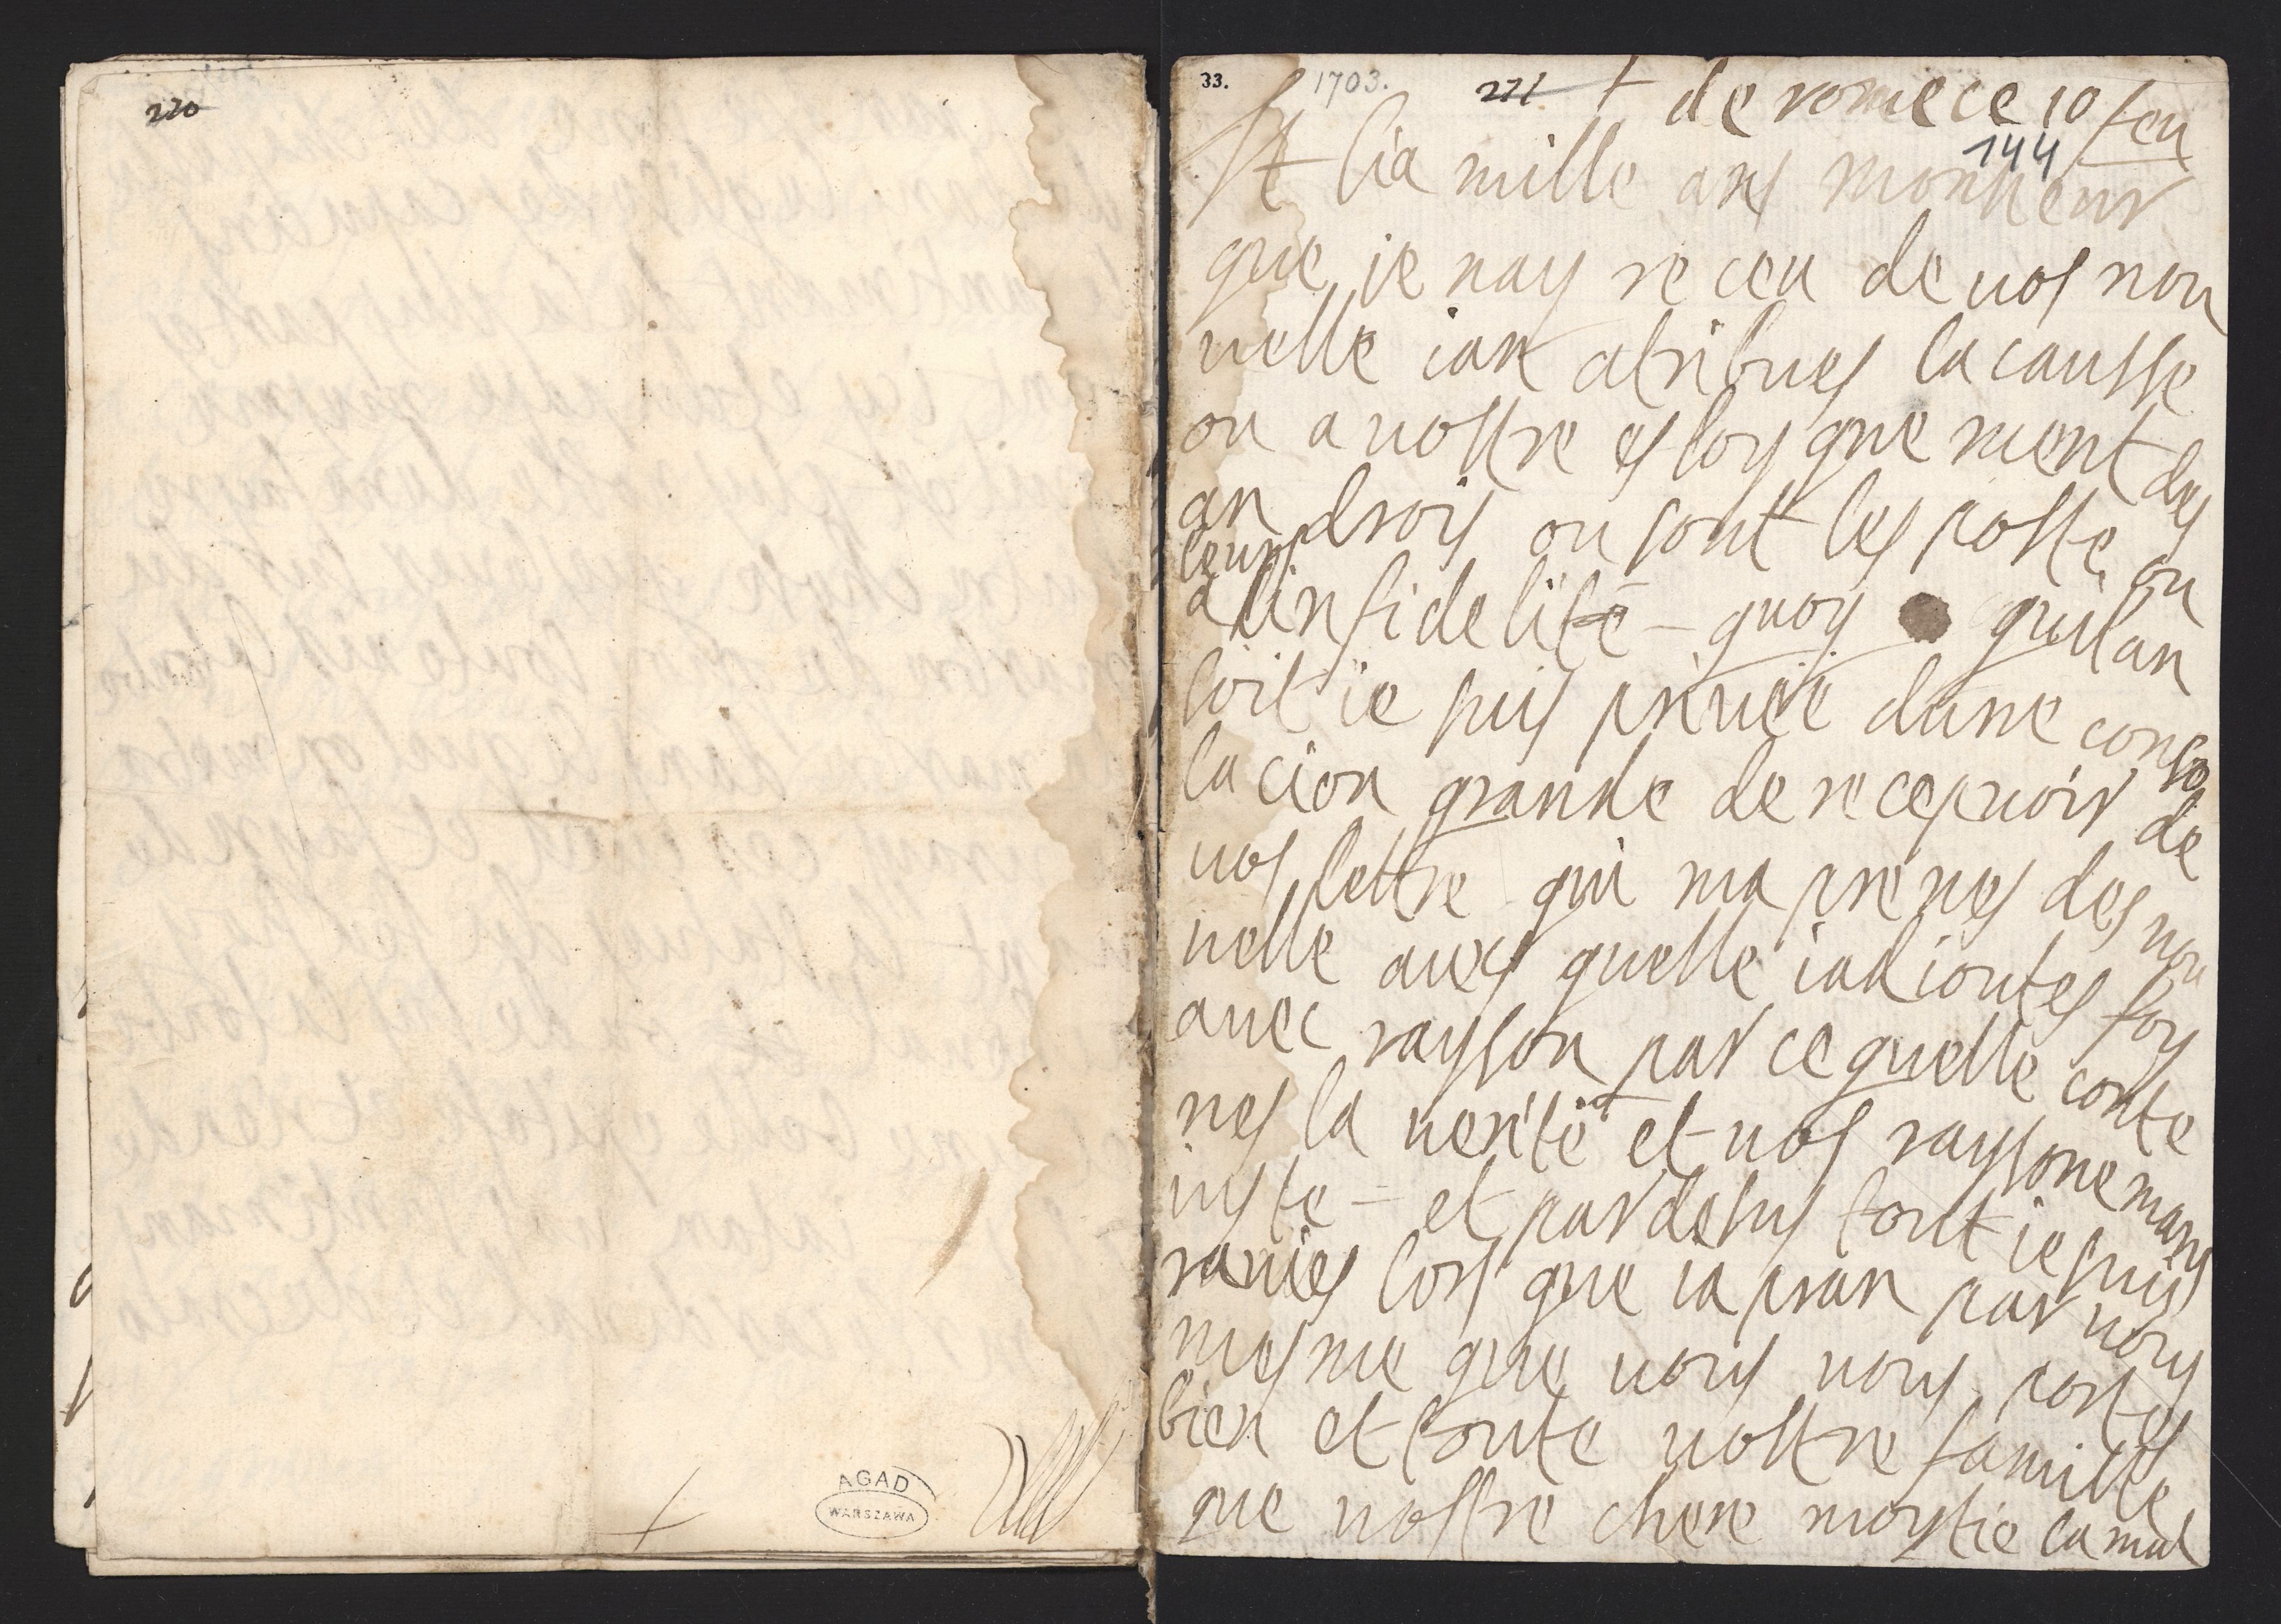 220
AGAD
WARSZAWA
33. 1703. 221 + de rome ce 10 feu
144
Il lia mille ans monsieur
que ie nay receu de uos nou
uelle ian atribues la causse
ou a uostre esloygnement des
an drois ou sont les poste ou
a linfidelité leurs - quoy quil an
soit ie suis priuée dune conso
lacion grande de recepuoir de
uos lettre qui ma prenes des nou
uelle aux quelle iadioutes foy
auec rayson par ce quelle conte
nes la uerité et uos raysonemans
iuste - et par desus tout ie suis
rauies lors que ia pran par uous
mesme que uous uous portes
bien et toute uostre famille
que uostre chere moytie la mal